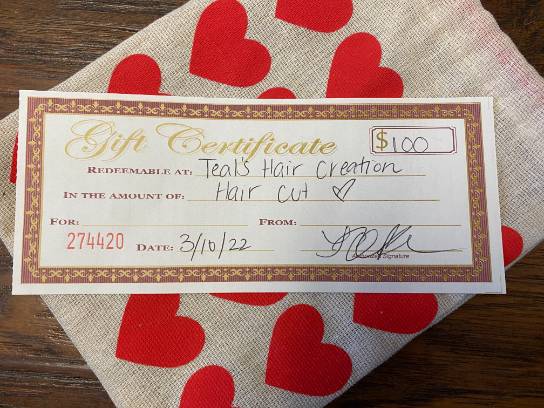 Gift Certificate $100
REDEEMABLE AT: Teal's Hair Creation
IN THE AMOUNT OF: Hair Cut
FOR: FROM:
274420 DATE: 3/10/22
Authorized Signature